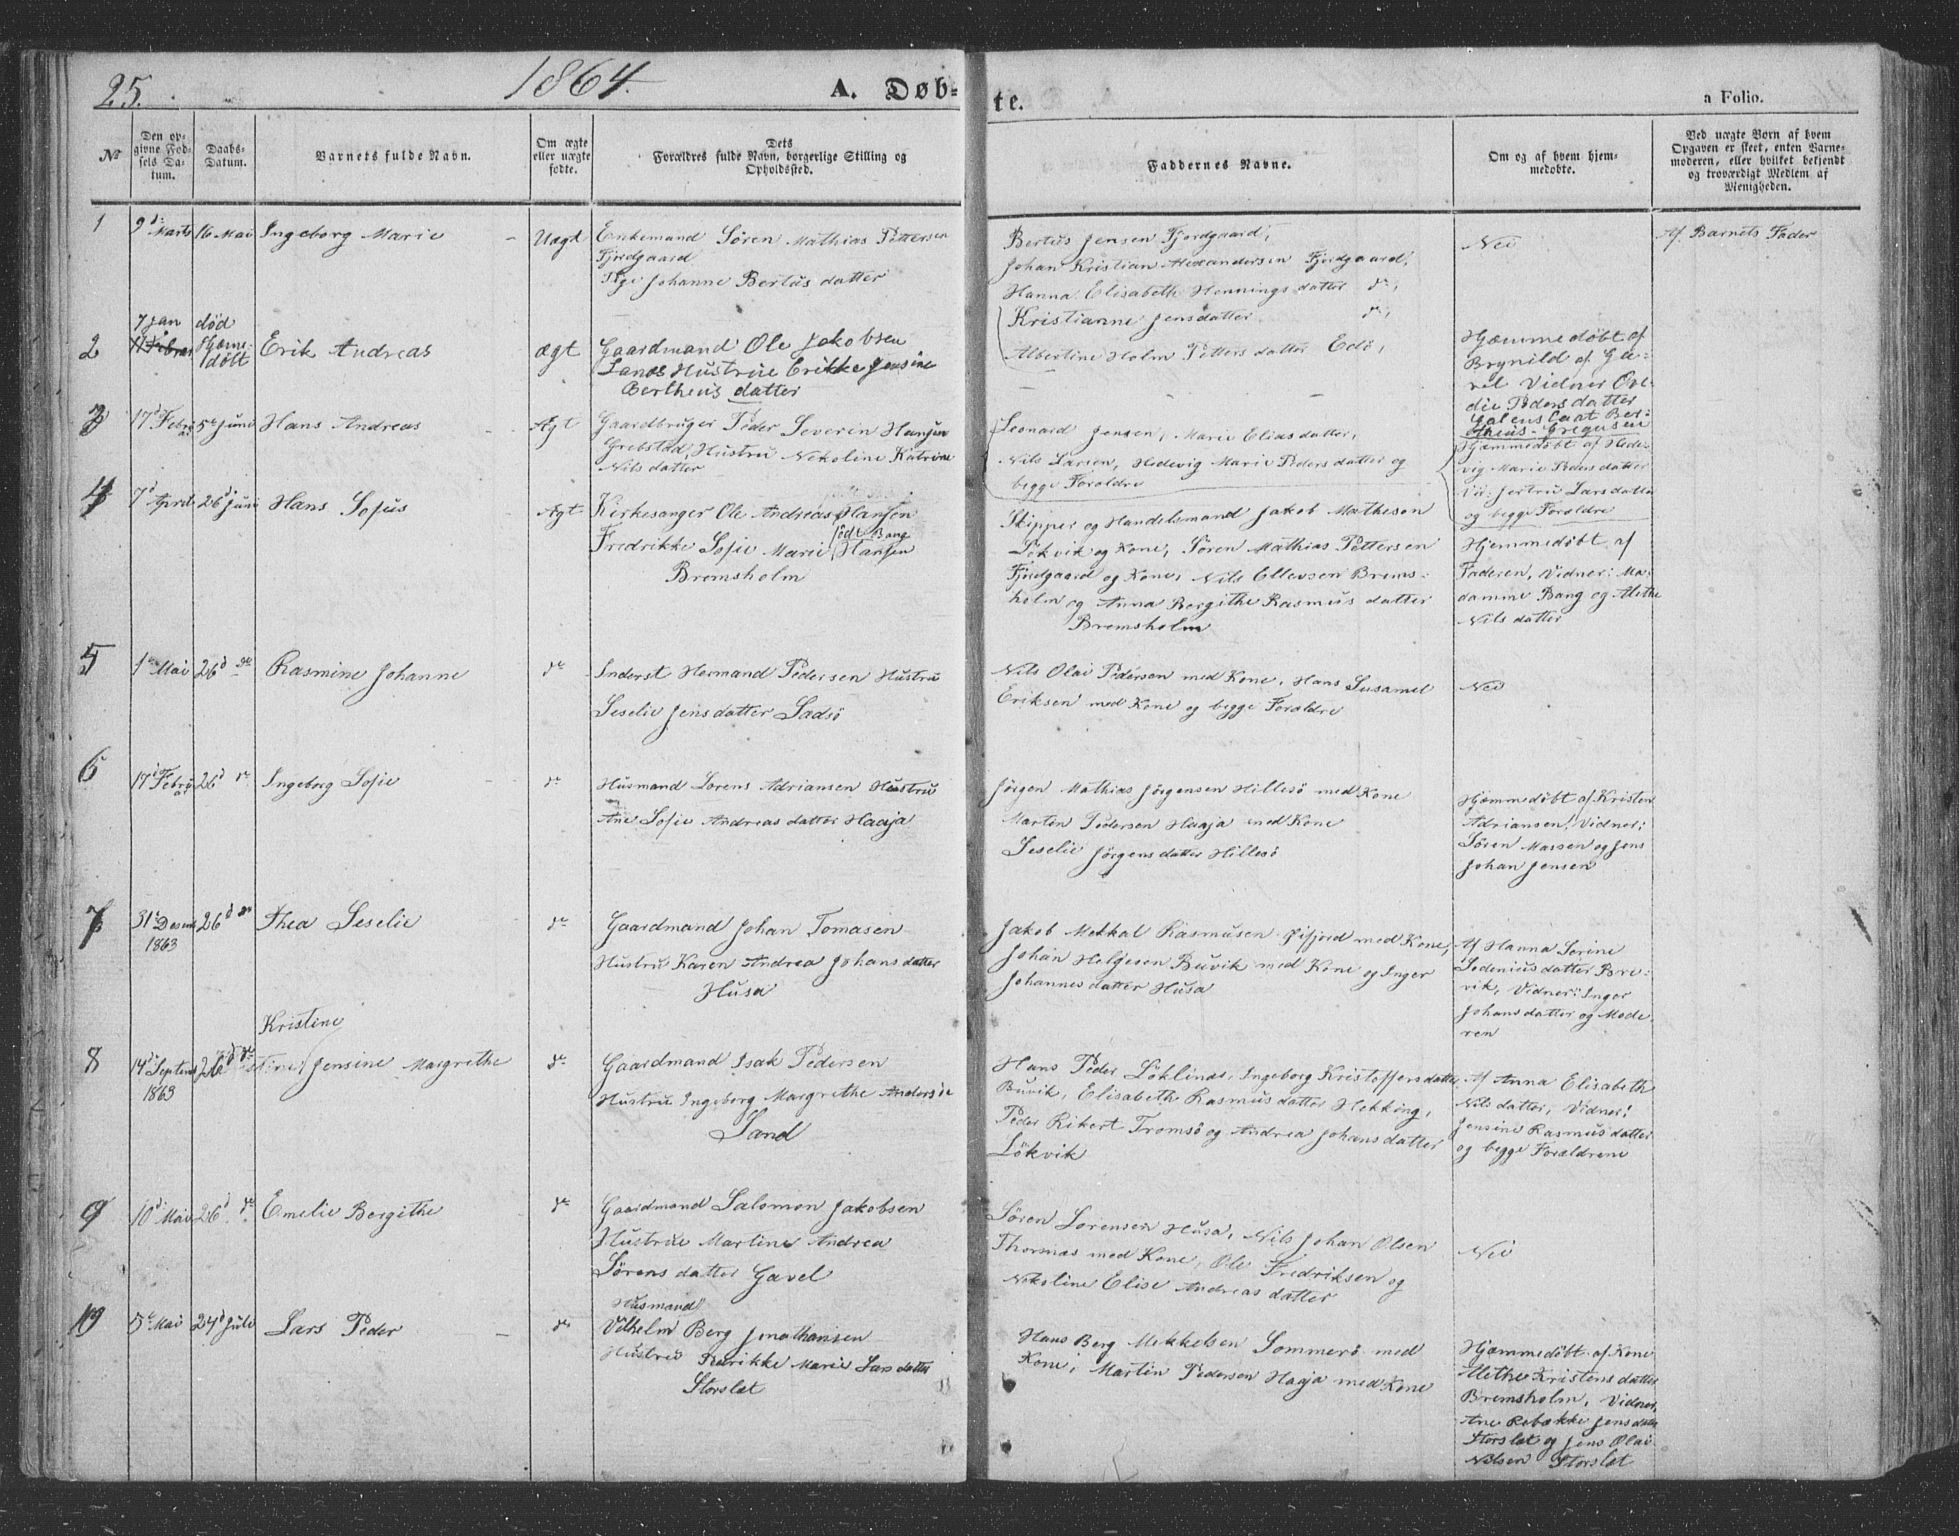 25.
1864.
A. Døb-
te.
a Folio.
№
Den op-
givne Fød-
sels Da-
tum.
Daabs-
Datum.
Barnets fulde Navn.
Om ægte
eller uægte
fødte.
Dets
Forældres fulde Navn, borgerlige Stilling og
Opholdssted.
Faddernes Navne.
Om og af hvem hjem-
medøbte.
Ved uægte Børn af hvem
Opgaven er skeet, enten Barne-
moderen, eller hvilket bekjendt
og troværdigt Medlem af
Menigheden.
1
9d Marts
16 Mai
Ingeborg Marie
Uægt
Enkemand Sören Mathias Pettersen
Fjordgaard
Pige Johanne Bertus datter
Bertus Jensen Fjordgaard,
Johan Kristian Alexandersen Fjordgaard,
Hanna Elisabeth Hennings datter do,
Kristianne Jensdatter do,
Albertine Holm Petters datter Edö,
Nei
Af Barnets Fader
2
7 Jan
død
Hjæme-
døbt
Erik Andreas
ægt
Gaardmand Ole Jakobsen
Sanes Hustrue Erikke Jensine
Bertheus datter
Hjæmmedøbt af
Brynild af Gu-
Vidner
Peders datter
3
17d Febru
5te Juni
Hans Andreas
Ægt
Gaardbruger Peder Severin Hansen
Grebstad, Hustru Nekoline Katrine
Nils datter
Leonard Jensen, Marie Elias datter,
Nils Larsen, Hedevig Marie Peders datter og
begge Foreldre
Hjæmmedøbt af Hede-
vig Marie Peders datter
Vid: Jertru Lars datter
og begge Foreldre
4
7d April
26d Juni
Hans Sofus
Ægt
Kirkesanger Ole Andreas Hansen
født Bang
Fredrikke Sofie Marie Hansen
Bremsholm
Skipper og Handelsmand Jakob Matheson
Lökvik og Kone, Sören Mathias Pettersen
Fjordgaard og Kone, Nils Ellevsen Brems-
holm og Anna Bergithe Rasmus datter
Bremsholm
Hjemmedøbt af
Faderen, Vidner: Ma-
damme Bang og Alethe
Nils datter
5
1te Mai
26d do
Rasmine Johanne
do
Inderst Hermand Pedersen Hustru
Seselie Jens datter Ladsö
Nils Olai Pedersen med Kone, Hans Susamel
Eriksen med Kone og begge Foreldre
Nei
6
17d Febru
26d do
Ingeborg Sofie
do
Husmand Lorens Adriansen Hustru
Ane Sofie Andreas datter Haaja
Jörgen Mathias Jörgensen Hillesö med Kone
Marten Pedersen Haaja med Kone
Seselie Jörgens datter Hillesö
Hjæmmedøbt af Kristen
Adriansen, Vidner:
Sören Massen og Jens
Johan Jensen
7
31te Desem
1863
26d do
Thea Seselie
do
Gaardmand Johan Tomasen
Hustru Karen Andrea Johans datter
Husa
Jakob Mekkal Rasmusen Øifjord med Kone,
Johan Helgesen Buvik med Kone og Inger
Johannes datter Husa
Af Hanna Serine
Sedenius datter Bre-
vik, Vidner: Inger
Johans datter og Mode-
ren
8
14d Septem
1863
26d do
Kristine
Jensine Margrethe
do
Gaardmand Isak Pedersen
Hustru Ingeberg Margrethe Andersdr
Sand
Hans Peder Löklines, Ingeborg Kristoffers datter
Buvik, Elisabeth Rasmus datter Hekking,
Peder Rikert Tromsö og Andrea Johans datter
Lökvik
Af Anna Elisabeth
Nils datter, Vidner:
Jensine Rasmus datter
og begge Forældrene
9
10d Mai
26d do
Emelie Bergithe
do
Gaardmand Salomon Jakobsen
Hustrue Martine Andrea
Sörens datter Gavel
Sören Sörensen Husa, Nils Johan Olsen
Thormæs med Kone, Ole Fredriksen og
Nekoline Elise Andreas datter
Nei
10
5te Mai
24d Juli
Lars Peder
do
Husmand
Vilhelm Berg Jonathansen
Hustrue Rarikke Marie Lars datter
Storslet
Hans Berg Mekkelsen Sommerö med
Kone, Martin Pedersen Haaja med Kone
Hjæmmedøbt af Kone
Alethe Kristens datter
Bremsholm, Vidner,
Ane Rebække Jens datter
Storslet og Jens Olai
Nilsen Storslet